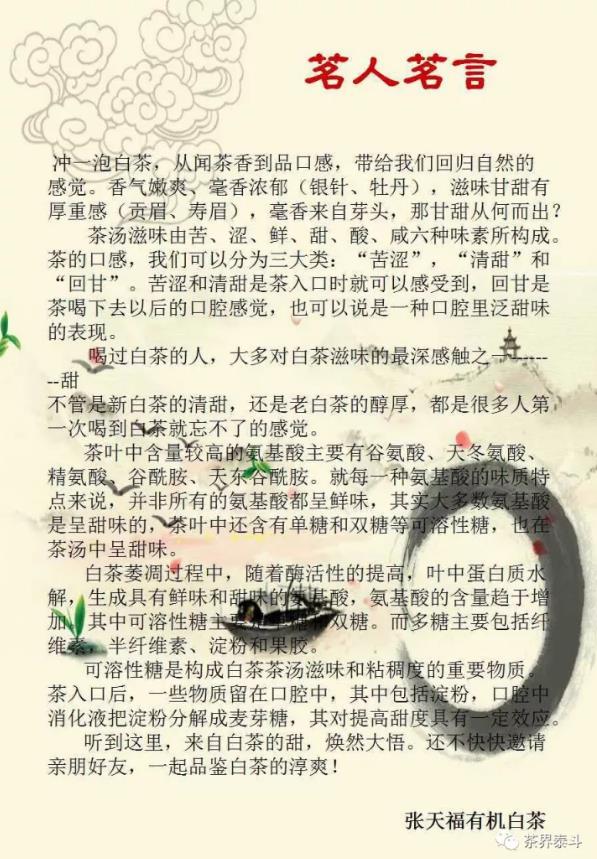 茗人茗言
冲一泡白茶，从闻茶香到品口感，带给我们回归自然的
感觉。香气嫩爽、毫香浓郁（银针、牡丹），滋味甘甜有
厚重感（贡眉、寿眉），毫香来自芽头，那甘甜从何而出？
茶汤滋味由苦、涩、鲜、甜、酸、咸六种味素所构成。
茶的口感，我们可以分为三大类：“苦涩”，“清甜”和
“回甘”。苦涩和清甜是茶入口时就可以感受到，回甘是
茶喝下去以后的口腔感觉，也可以说是一种口腔里泛甜味
的表现。
喝过白茶的人，大多对白茶滋味的最深感触之一--------
--甜
不管是新白茶的清甜，还是老白茶的醇厚，都是很多人第
一次喝到白茶就忘不了的感觉。
茶叶中含量较高的氨基酸主要有谷氨酸、天冬氨酸、
精氨酸、谷酰胺、天东谷酰胺。就每一种氨基酸的味质特
点来说，并非所有的氨基酸都呈鲜味，其实大多数氨基酸
是呈甜味的，茶叶中还含有单糖和双糖等可溶性糖，也在
茶汤中呈甜味。
白茶萎凋过程中，随着酶活性的提高，叶中蛋白质水
解，生成具有鲜味和甜味的氨基酸，氨基酸的含量趋于增
加。其中可溶性糖主要是单糖和双糖。而多糖主要包括纤
维素，半纤维素、淀粉和果胶。
可溶性糖是构成白茶茶汤滋味和粘稠度的重要物质。
茶入口后，一些物质留在口腔中，其中包括淀粉，口腔中
消化液把淀粉分解成麦芽糖，其对提高甜度具有一定效应。
听到这里，来自白茶的甜，焕然大悟。还不快快邀请
亲朋好友，一起品鉴白茶的淳爽！
张天福有机白茶
茶界泰斗